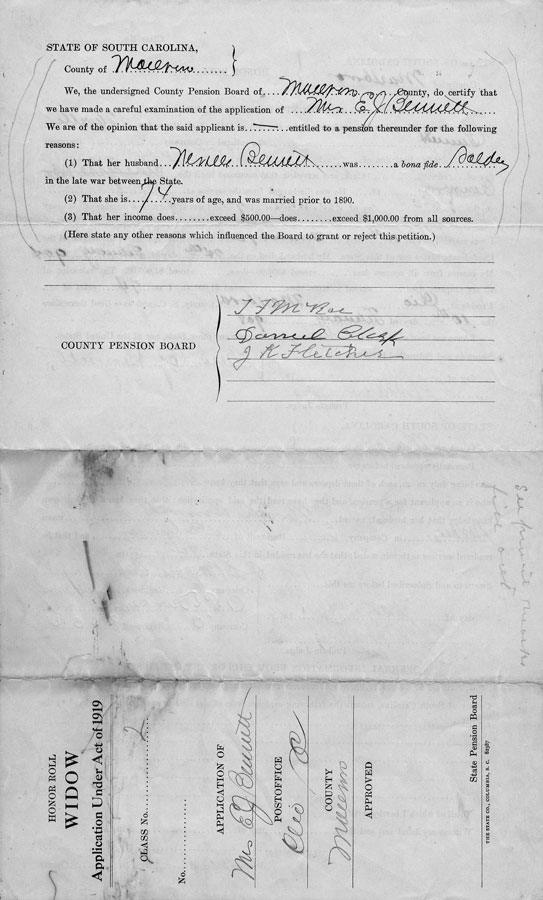 STATE OF SOUTH CAROLINA,
County of Marlboro
We, the undersigned County Pension Board of Marlboro County, do certify that
we have made a careful examination of the application of Mrs E J Bennett
We are of the opinion that the said applicant is entitled to a pension thereunder for the following
reasons:
(1) That her husband Bennett was a bona fide Soldier
in the late war between the State.
(2) That she is 74 years of age, and was married prior to 1890.
(3) That her income does exceed $500.00—does exceed $1,000.00 from all sources.
(Here state any other reasons which influenced the Board to grant or reject this petition.)
COUNTY PENSION BOARD
T F McRae
J K Fletcher
see
filed out
HONOR ROLL
WIDOW
Application Under Act of 1919
CLASS No. 2
No.
APPLICATION OF
Mrs E J Bennett
POSTOFFICE
Clio SC
COUNTY
Marlboro
APPROVED
State Pension Board
THE STATE CO., COLUMBIA, S. C.